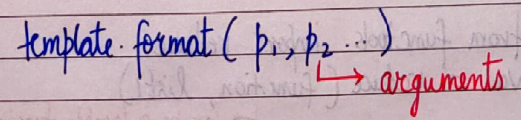 template.format( p1, p2 ...)
arguments